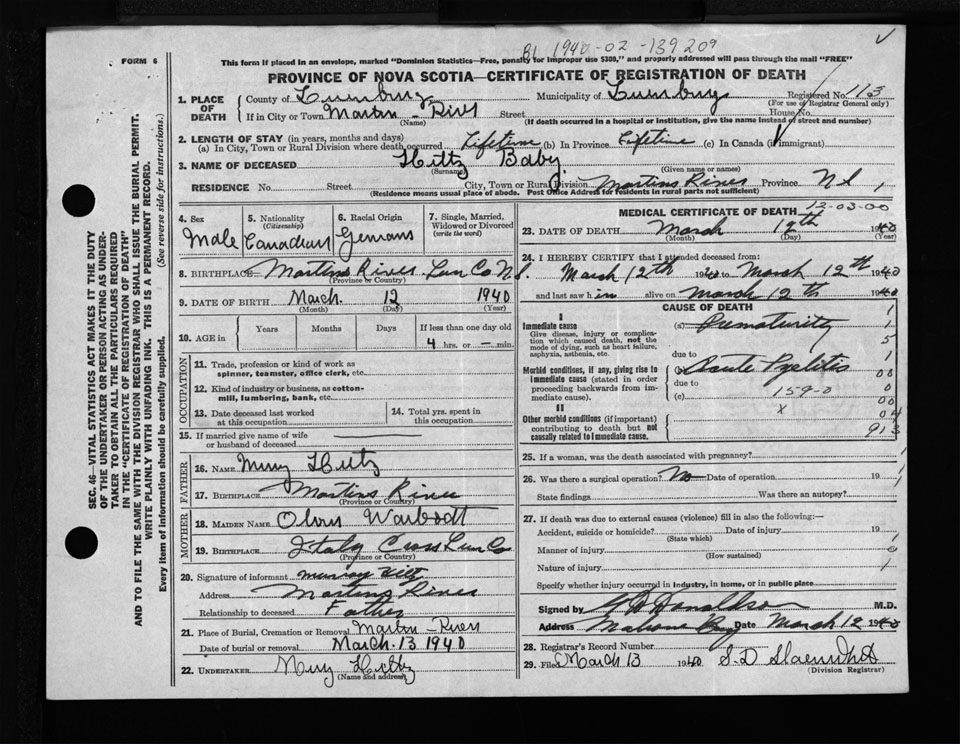 B1 1940-02-139209
FORM 6
This form if placed in an envelope, marked "Dominion Statistics—Free, penalty for improper use $300," and properly addressed will pass through the mail "FREE"
PROVINCE OF NOVA SCOTIA—CERTIFICATE OF REGISTRATION OF DEATH
SEC. 46—VITAL STATISTICS ACT MAKES IT THE DUTY
OF THE UNDERTAKER OR PERSON ACTING AS UNDER-
TAKER TO OBTAIN ALL THE PARTICULARS REQUIRED
IN THE "CERTIFICATE OF REGISTRATION OF DEATH"
AND TO FILE THE SAME WITH THE DIVISION REGISTRAR WHO SHALL ISSUE THE BURIAL PERMIT.
WRITE PLAINLY WITH UNFADING INK. THIS IS A PERMANENT RECORD.
Every item of information should be carefully supplied. (See reverse side for instructions.)
1. PLACE OF DEATH
County of Lunenburg Municipality of Lunenburg Registered No. 113
(For use of Registrar General only)
If in City or Town Martin-River Street House No.
(Name) (If death occurred in a hospital or institution, give the name instead of street and number)
2. LENGTH OF STAY (in years, months and days)
(a) In City, Town or Rural Division where death occurred Lifetime (b) In Province Lifetime (c) In Canada (if immigrant)
3. NAME OF DECEASED Hiltz Baby
(Surname) (Given name or names)
RESIDENCE No. Street City, Town or Rural Division Martins River Province N S 1
(Residence means usual place of abode. Post Office Address for residents in rural parts not sufficient)
4. Sex
Male
5. Nationality
(Citizenship)
Canadian
6. Racial Origin
Germans
7. Single, Married,
Widowed or Divorced
(write the word)
8. BIRTHPLACE Martins River Lun Co N.S.
(Province or Country)
9. DATE OF BIRTH March 12 1940
(Month) (Day) (Year)
10. AGE in
Years Months Days If less than one day old
4 hrs. or – min.
OCCUPATION
11. Trade, profession or kind of work as
spinner, teamster, office clerk, etc.
12. Kind of industry or business, as cotton-
mill, lumbering, bank, etc.
13. Date deceased last worked
at this occupation
14. Total yrs. spent in
this occupation
15. If married give name of wife
or husband of deceased
FATHER
16. NAME Hiltz
17. BIRTHPLACE Martins River
(Province or Country)
MOTHER
18. MAIDEN NAME
19. BIRTHPLACE Italy Cross Lun Co
(Province or Country)
20. Signature of informant Murray Hiltz
Address Martins River
Relationship to deceased Father
21. Place of Burial, Cremation or Removal Martin River
Date of burial or removal March. 13 1940
22. UNDERTAKER Hiltz
(Name and address)
MEDICAL CERTIFICATE OF DEATH 12-03-00
23. DATE OF DEATH March 12th 1940
(Month) (Day) (Year)
24. I HEREBY CERTIFY that I attended deceased from:
March 12th 1940 to March 12th 1940
and last saw him alive on March 12th 1940
CAUSE OF DEATH
I
Immediate cause (a) Prematurity
Give disease, injury or complication
which caused death, not the
mode of dying, such as heart failure,
asphyxia, asthenia, etc.
due to
Morbid conditions, if any, giving rise to (b) Acute Pyelitis
immediate cause (stated in order due to
proceeding backwards from im- 159-0
mediate cause). (c)
II x
Other morbid conditions (if important)
contributing to death but not
causally related to immediate cause. 913
25. If a woman, was the death associated with pregnancy?
26. Was there a surgical operation? No Date of operation 19
State findings Was there an autopsy?
27. If death was due to external causes (violence) fill in also the following:—
Accident, suicide or homicide? Date of injury 19
(State which)
Manner of injury
(How sustained)
Nature of injury
Specify whether injury occurred in industry, in home, or in public place
Signed by M.D.
Address Mahone Bay Date March 12 1940
28. Registrar's Record Number
29. Filed March 13 1940 S.D.
(Division Registrar)